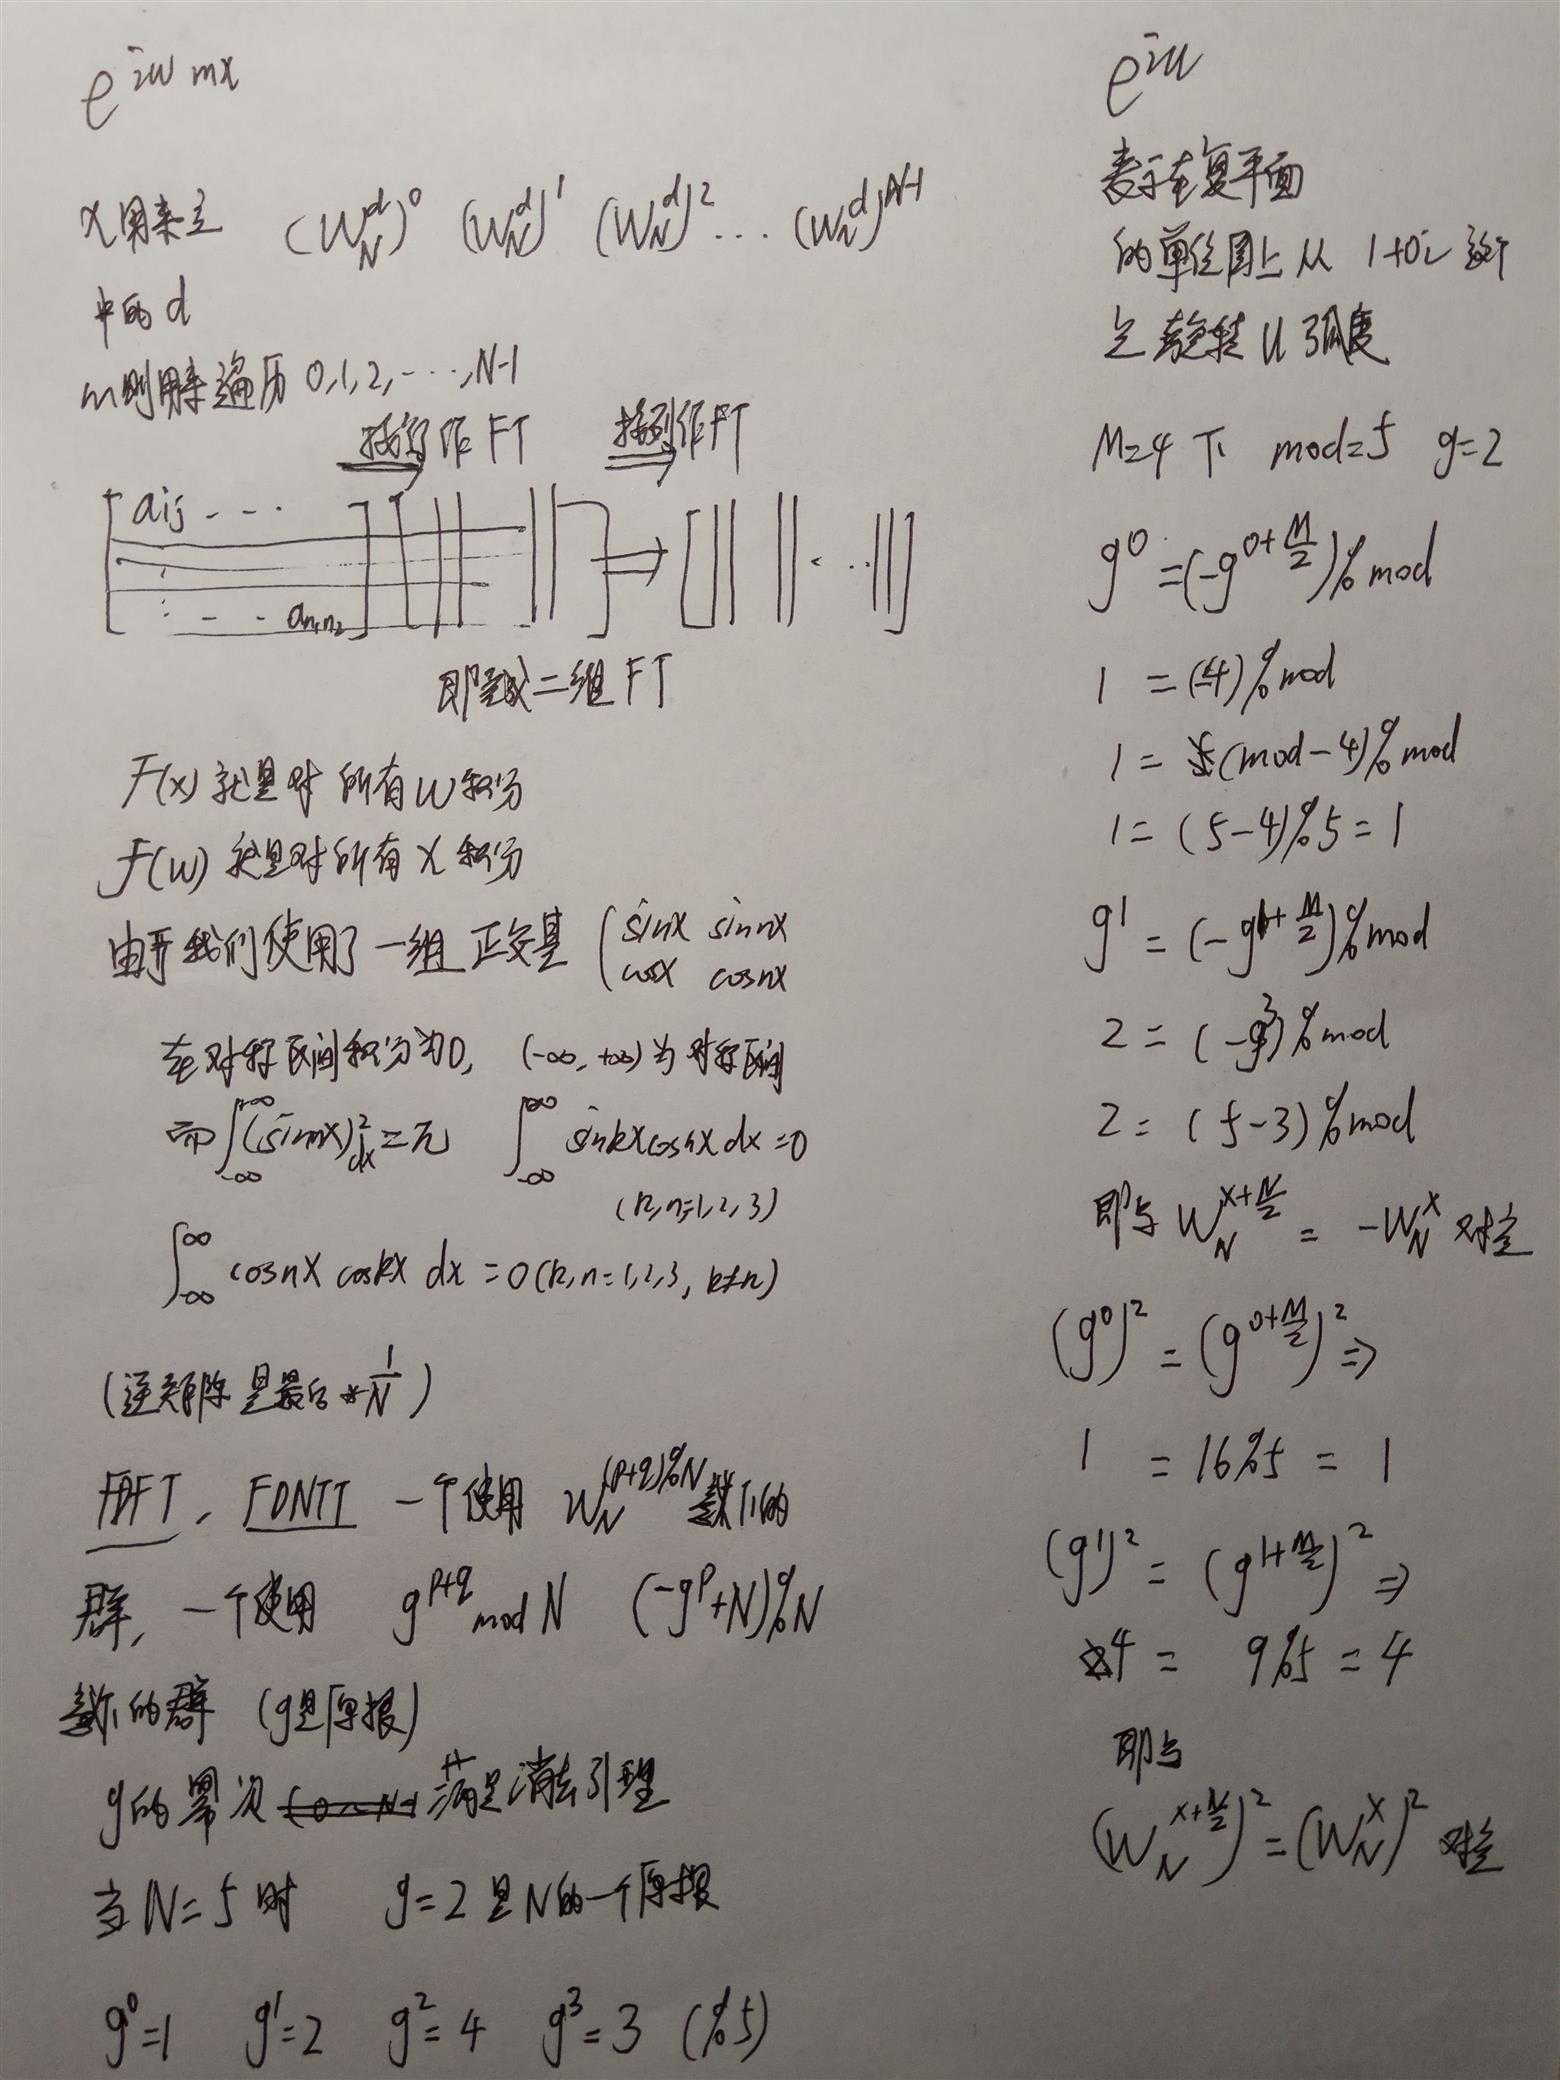 e^{iu mx}
x用来立 (W_N^d)^0 (W_N^d)^1 (W_N^d)^2 ... (W_N^d)^{N-1}
中的 d
m则用来遍历 0,1,2,...,N-1
按行作 FT 按列作 FT
a_{ij} ...
... a_{n_1n_2}
即完成二维 FT
F(x) 就是对所有 w 积分
F(w) 就是对所有 x 积分
由于我们使用了一组正交基 ( sinx sinnx
cosx cosnx
在对称区间积分为0, (-∞,+∞)为对称区间
而∫_{-∞}^{+∞}(sinnx)^2dx=π ∫_{-∞}^{∞} sinkxcosnxdx=0
(k,n=1,2,3)
∫_{-∞}^{∞} cosnx coskx dx = 0 (k,n=1,2,3, k≠n)
(逆矩阵是最后*1/N)
FDFT, FDNTT 一个使用 W_N^{(p+q)%N} 乘下的
群, 一个使用 g^{p+q} mod N (-g^p+N)%N
乘下的群 (g是原根)
g的幂次 也满足消去引理
当 N=5 时 g=2 是N的一个原根
g^0=1 g^1=2 g^2=4 g^3=3 (%5)
e^{iu}
表示在复平面
的单位圆上从 1+0i 这个
点旋转 u 弧度
M=4 下 mod=5 g=2
g^0 =(-g^{0+M/2})%mod
1 = (-4)%mod
1 = (mod-4)%mod
1= (5-4)%5=1
g^1 = (-g^{1+M/2})%mod
2 = (-g^3)%mod
2= (5-3)%mod
即与 W_N^{x+N/2} = -W_N^x 对应
(g^0)^2 = (g^{0+M/2})^2 ⇒
1 = 16%5 = 1
(g^1)^2 = (g^{1+M/2})^2 ⇒
4 = 9%5 = 4
即与
(W_N^{x+N/2})^2=(W_N^x)^2 对应